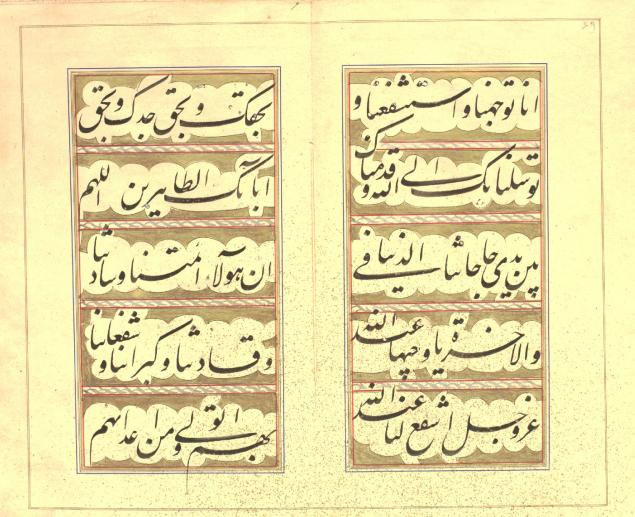 انا توجهنا و استشفعنا و
توسلنا بک الی الله و قدمناک
بین یدی حاجاتنا فی الدنیا
والاخرة یا وجیها عند الله
عزوجل اشفع لنا عند الله
بحقک و بحق جدک و بحق
ابائک الطاهرین اللهم
ان هولاء ائمتنا و سادتنا
و قادتنا و کبراننا و شفعائنا
بهم اتولی و من اعدائهم